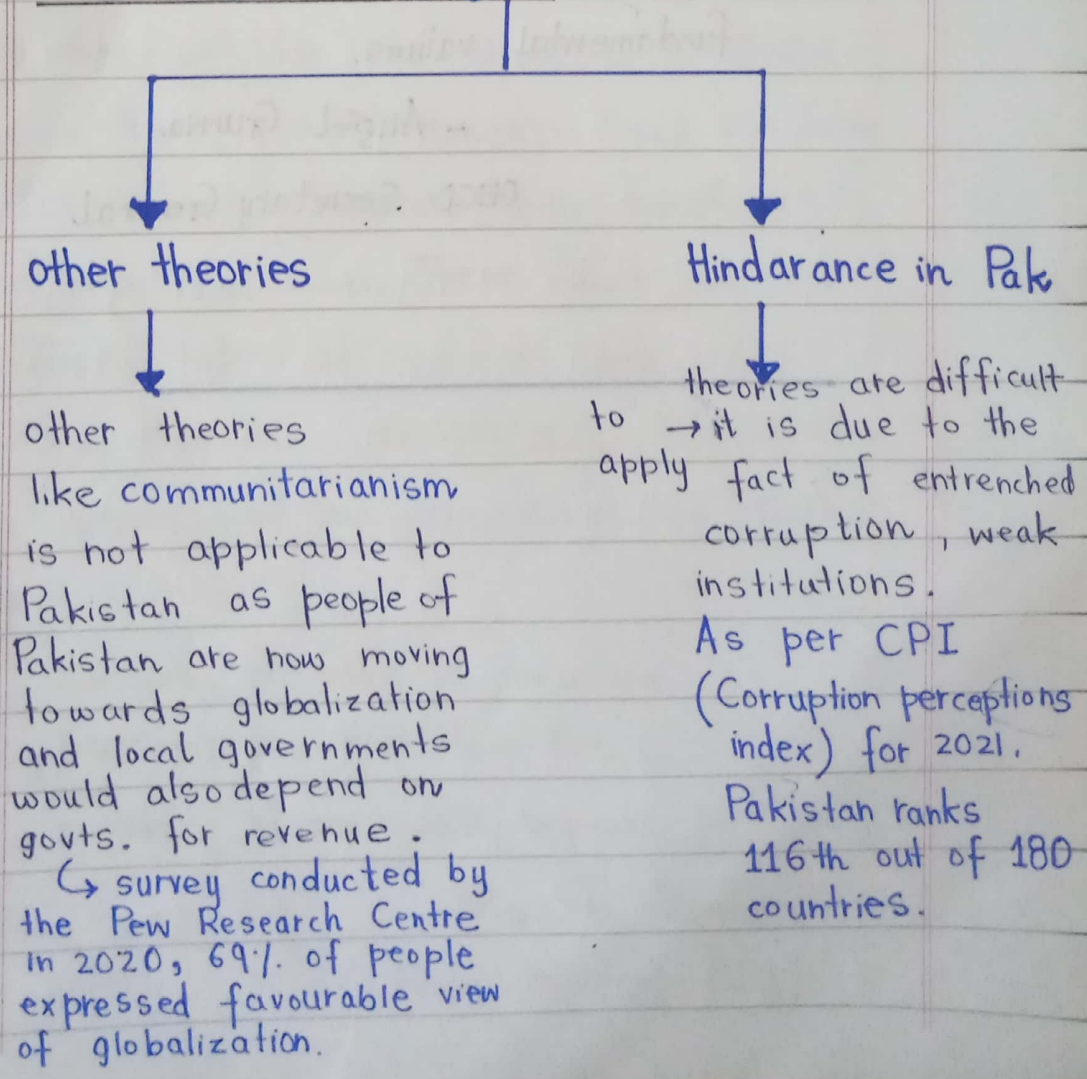 other theories
other theories
like communitarianism
is not applicable to
Pakistan as people of
Pakistan are now moving
towards globalization
and local governments
would also depend on
govts. for revenue.
↳ survey conducted by
the Pew Research Centre
in 2020, 69% of people
expressed favourable view
of globalization.
Hindarance in Pak
theories are difficult
to → it is due to the
apply fact of entrenched
corruption, weak
institutions.
As per CPI
(Corruption perceptions
index) for 2021.
Pakistan ranks
116th out of 180
countries.